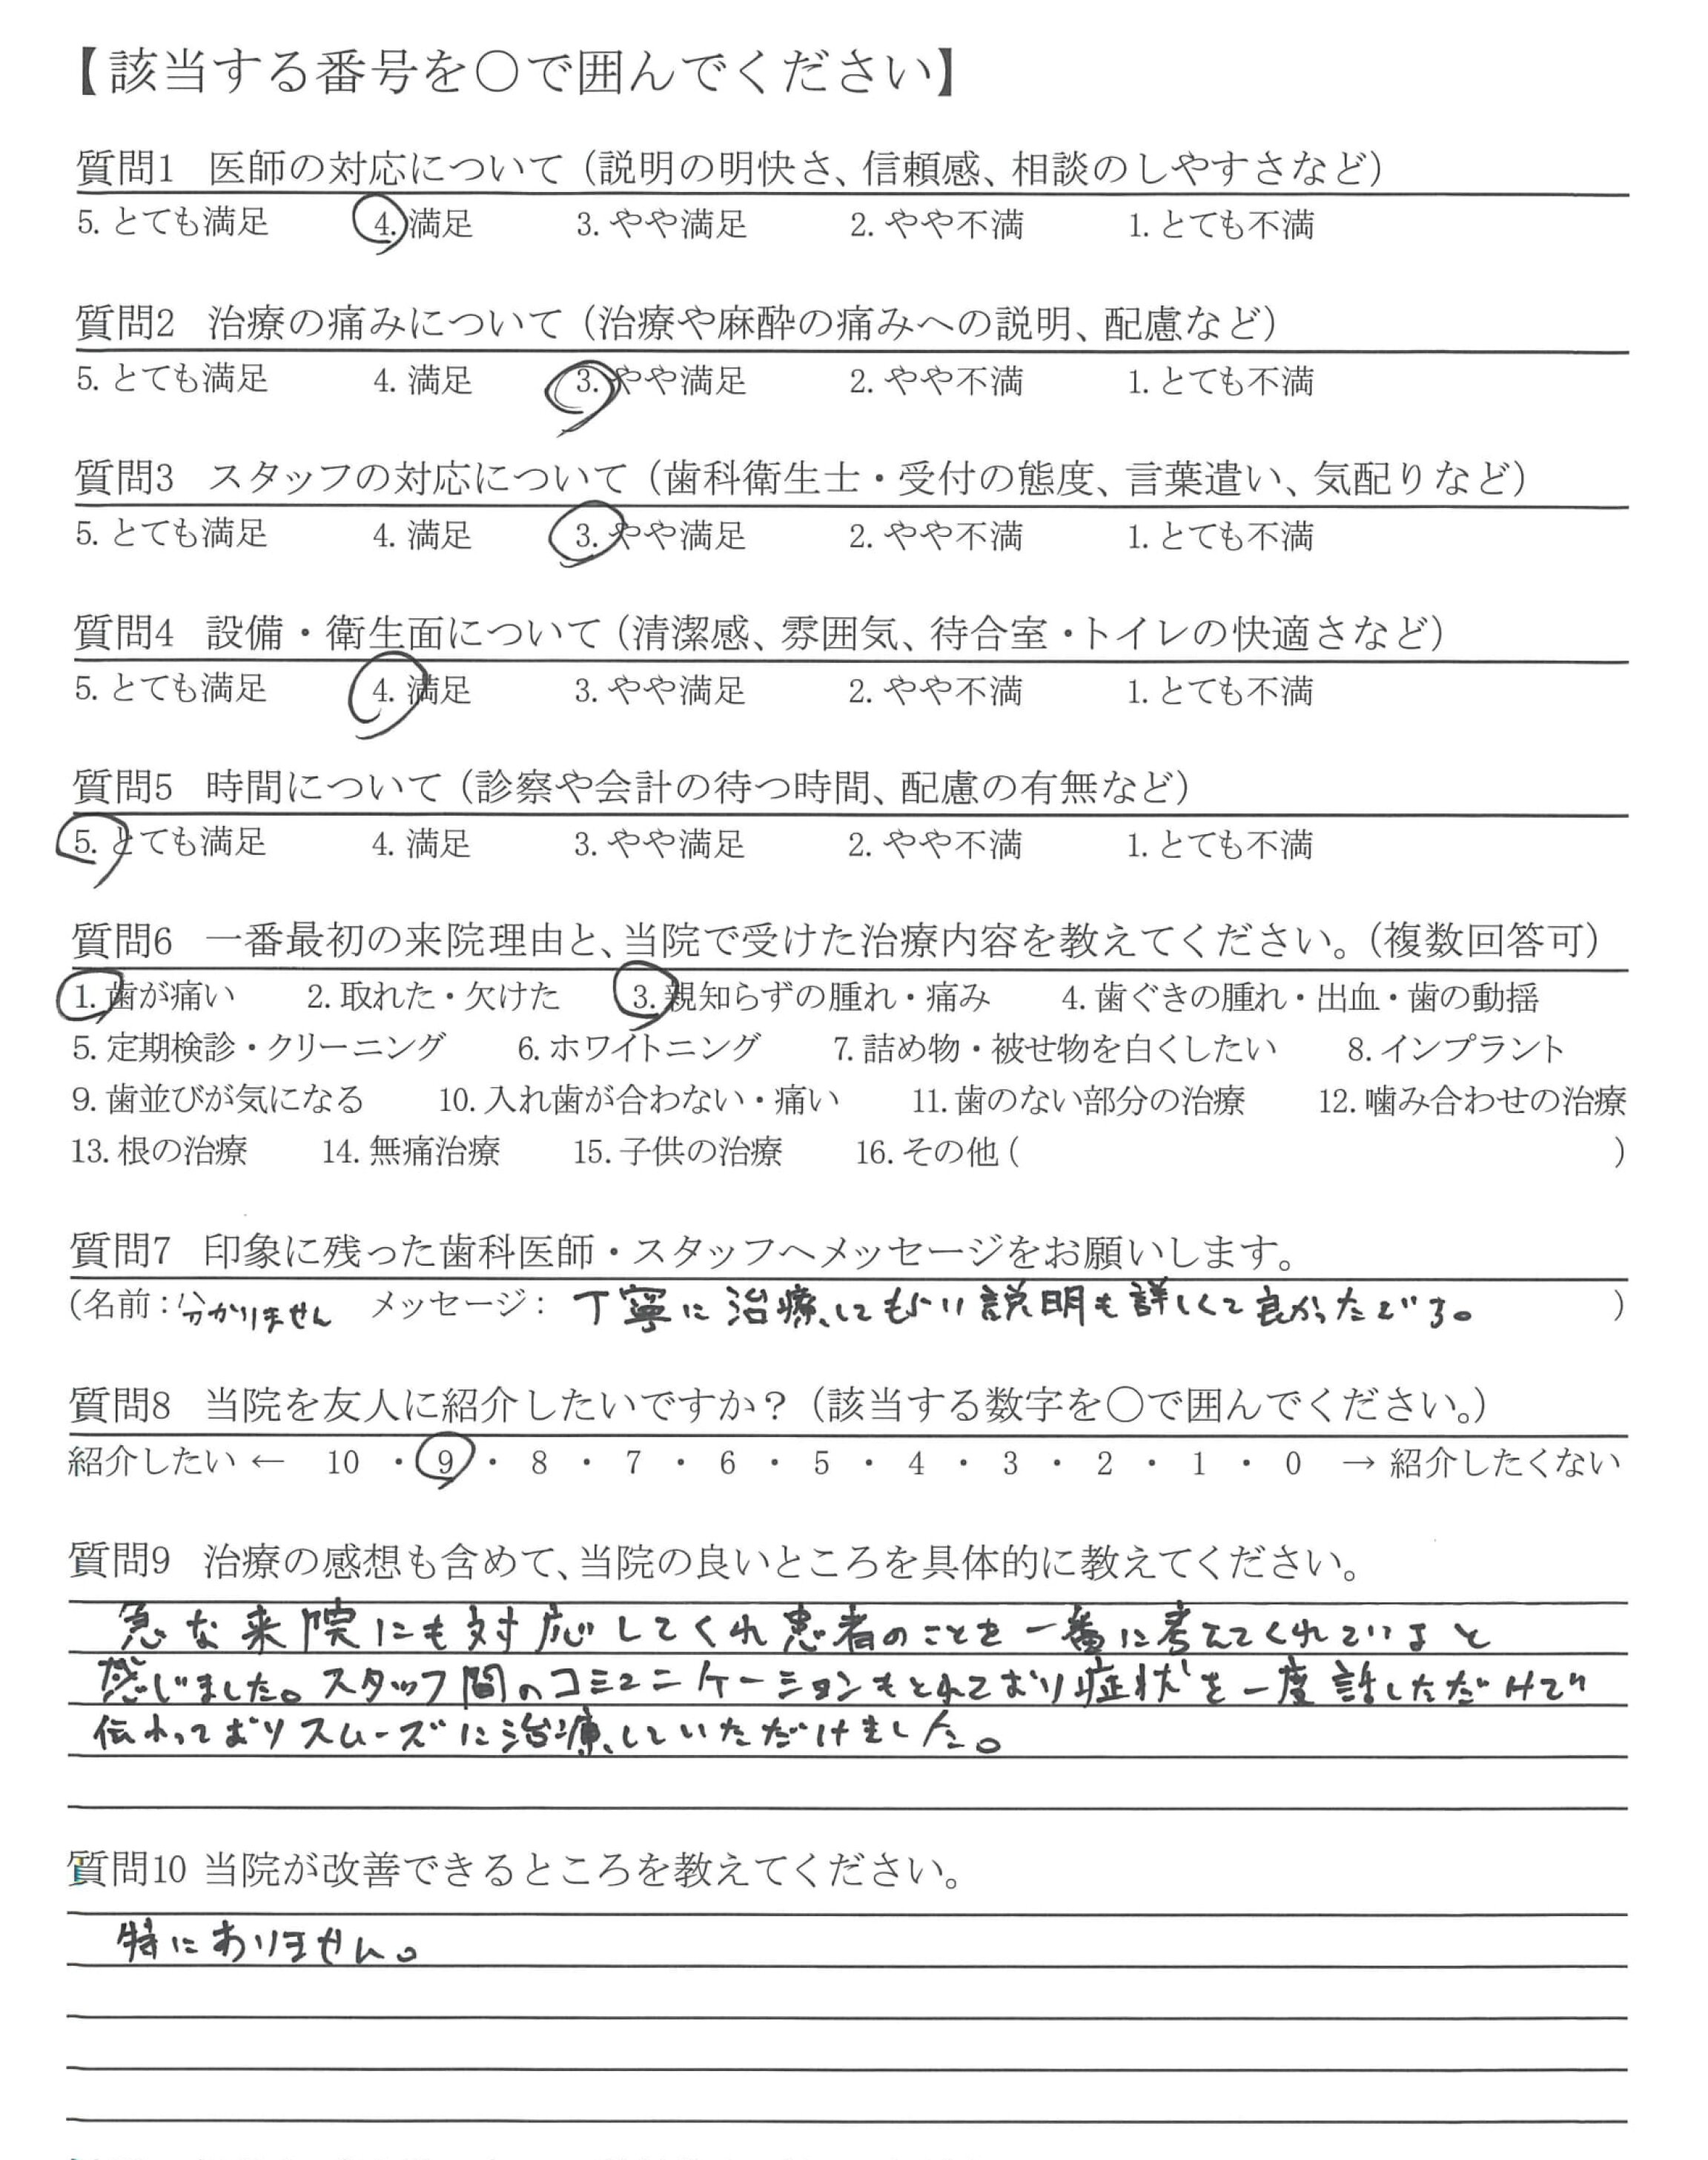 【該当する番号を〇で囲んでください】
質問1 医師の対応について（説明の明快さ、信頼感、相談のしやすさなど）
5. とても満足 4. 満足 3. やや満足 2. やや不満 1. とても不満
質問2 治療の痛みについて（治療や麻酔の痛みへの説明、配慮など）
5. とても満足 4. 満足 3. やや満足 2. やや不満 1. とても不満
質問3 スタッフの対応について（歯科衛生士・受付の態度、言葉遣い、気配りなど）
5. とても満足 4. 満足 3. やや満足 2. やや不満 1. とても不満
質問4 設備・衛生面について（清潔感、雰囲気、待合室・トイレの快適さなど）
5. とても満足 4. 満足 3. やや満足 2. やや不満 1. とても不満
質問5 時間について（診察や会計の待つ時間、配慮の有無など）
5. とても満足 4. 満足 3. やや満足 2. やや不満 1. とても不満
質問6 一番最初の来院理由と、当院で受けた治療内容を教えてください。（複数回答可）
1. 歯が痛い 2. 取れた・欠けた 3. 親知らずの腫れ・痛み 4. 歯ぐきの腫れ・出血・歯の動揺
5. 定期検診・クリーニング 6. ホワイトニング 7. 詰め物・被せ物を白くしたい 8. インプラント
9. 歯並びが気になる 10. 入れ歯が合わない・痛い 11. 歯のない部分の治療 12. 噛み合わせの治療
13. 根の治療 14. 無痛治療 15. 子供の治療 16. その他（ ）
質問7 印象に残った歯科医師・スタッフへメッセージをお願いします。
（名前：分かりません メッセージ： 丁寧に治療してもらい説明も詳しくて良かったです。 ）
質問8 当院を友人に紹介したいですか？（該当する数字を〇で囲んでください。）
紹介したい ← 10 ・ 9 ・ 8 ・ 7 ・ 6 ・ 5 ・ 4 ・ 3 ・ 2 ・ 1 ・ 0 → 紹介したくない
質問9 治療の感想も含めて、当院の良いところを具体的に教えてください。
急な来院にも対応してくれ患者のことを一番に考えてくれていると
感じました。スタッフ間のコミュニケーションもとれており症状を一度話しただけで
伝わっておりスムーズに治療していただけました。
質問10 当院が改善できるところを教えてください。
特にありません。